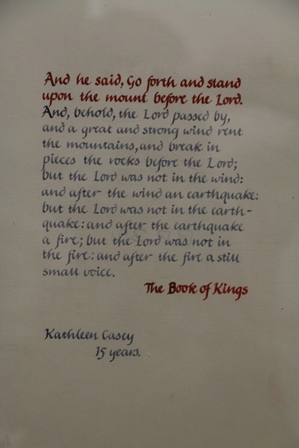 And he said, Go forth and stand
upon the mount before the Lord.
And, behold, the Lord passed by,
and a great and strong wind rent
the mountains, and break in
pieces the rocks before the Lord;
but the Lord was not in the wind:
and after the wind an earthquake:
but the Lord was not in the earth-
quake: and after the earthquake
a fire; but the Lord was not in
the fire: and after the fire a still
small voice.
The Book of Kings
Kathleen Casey
15 years.